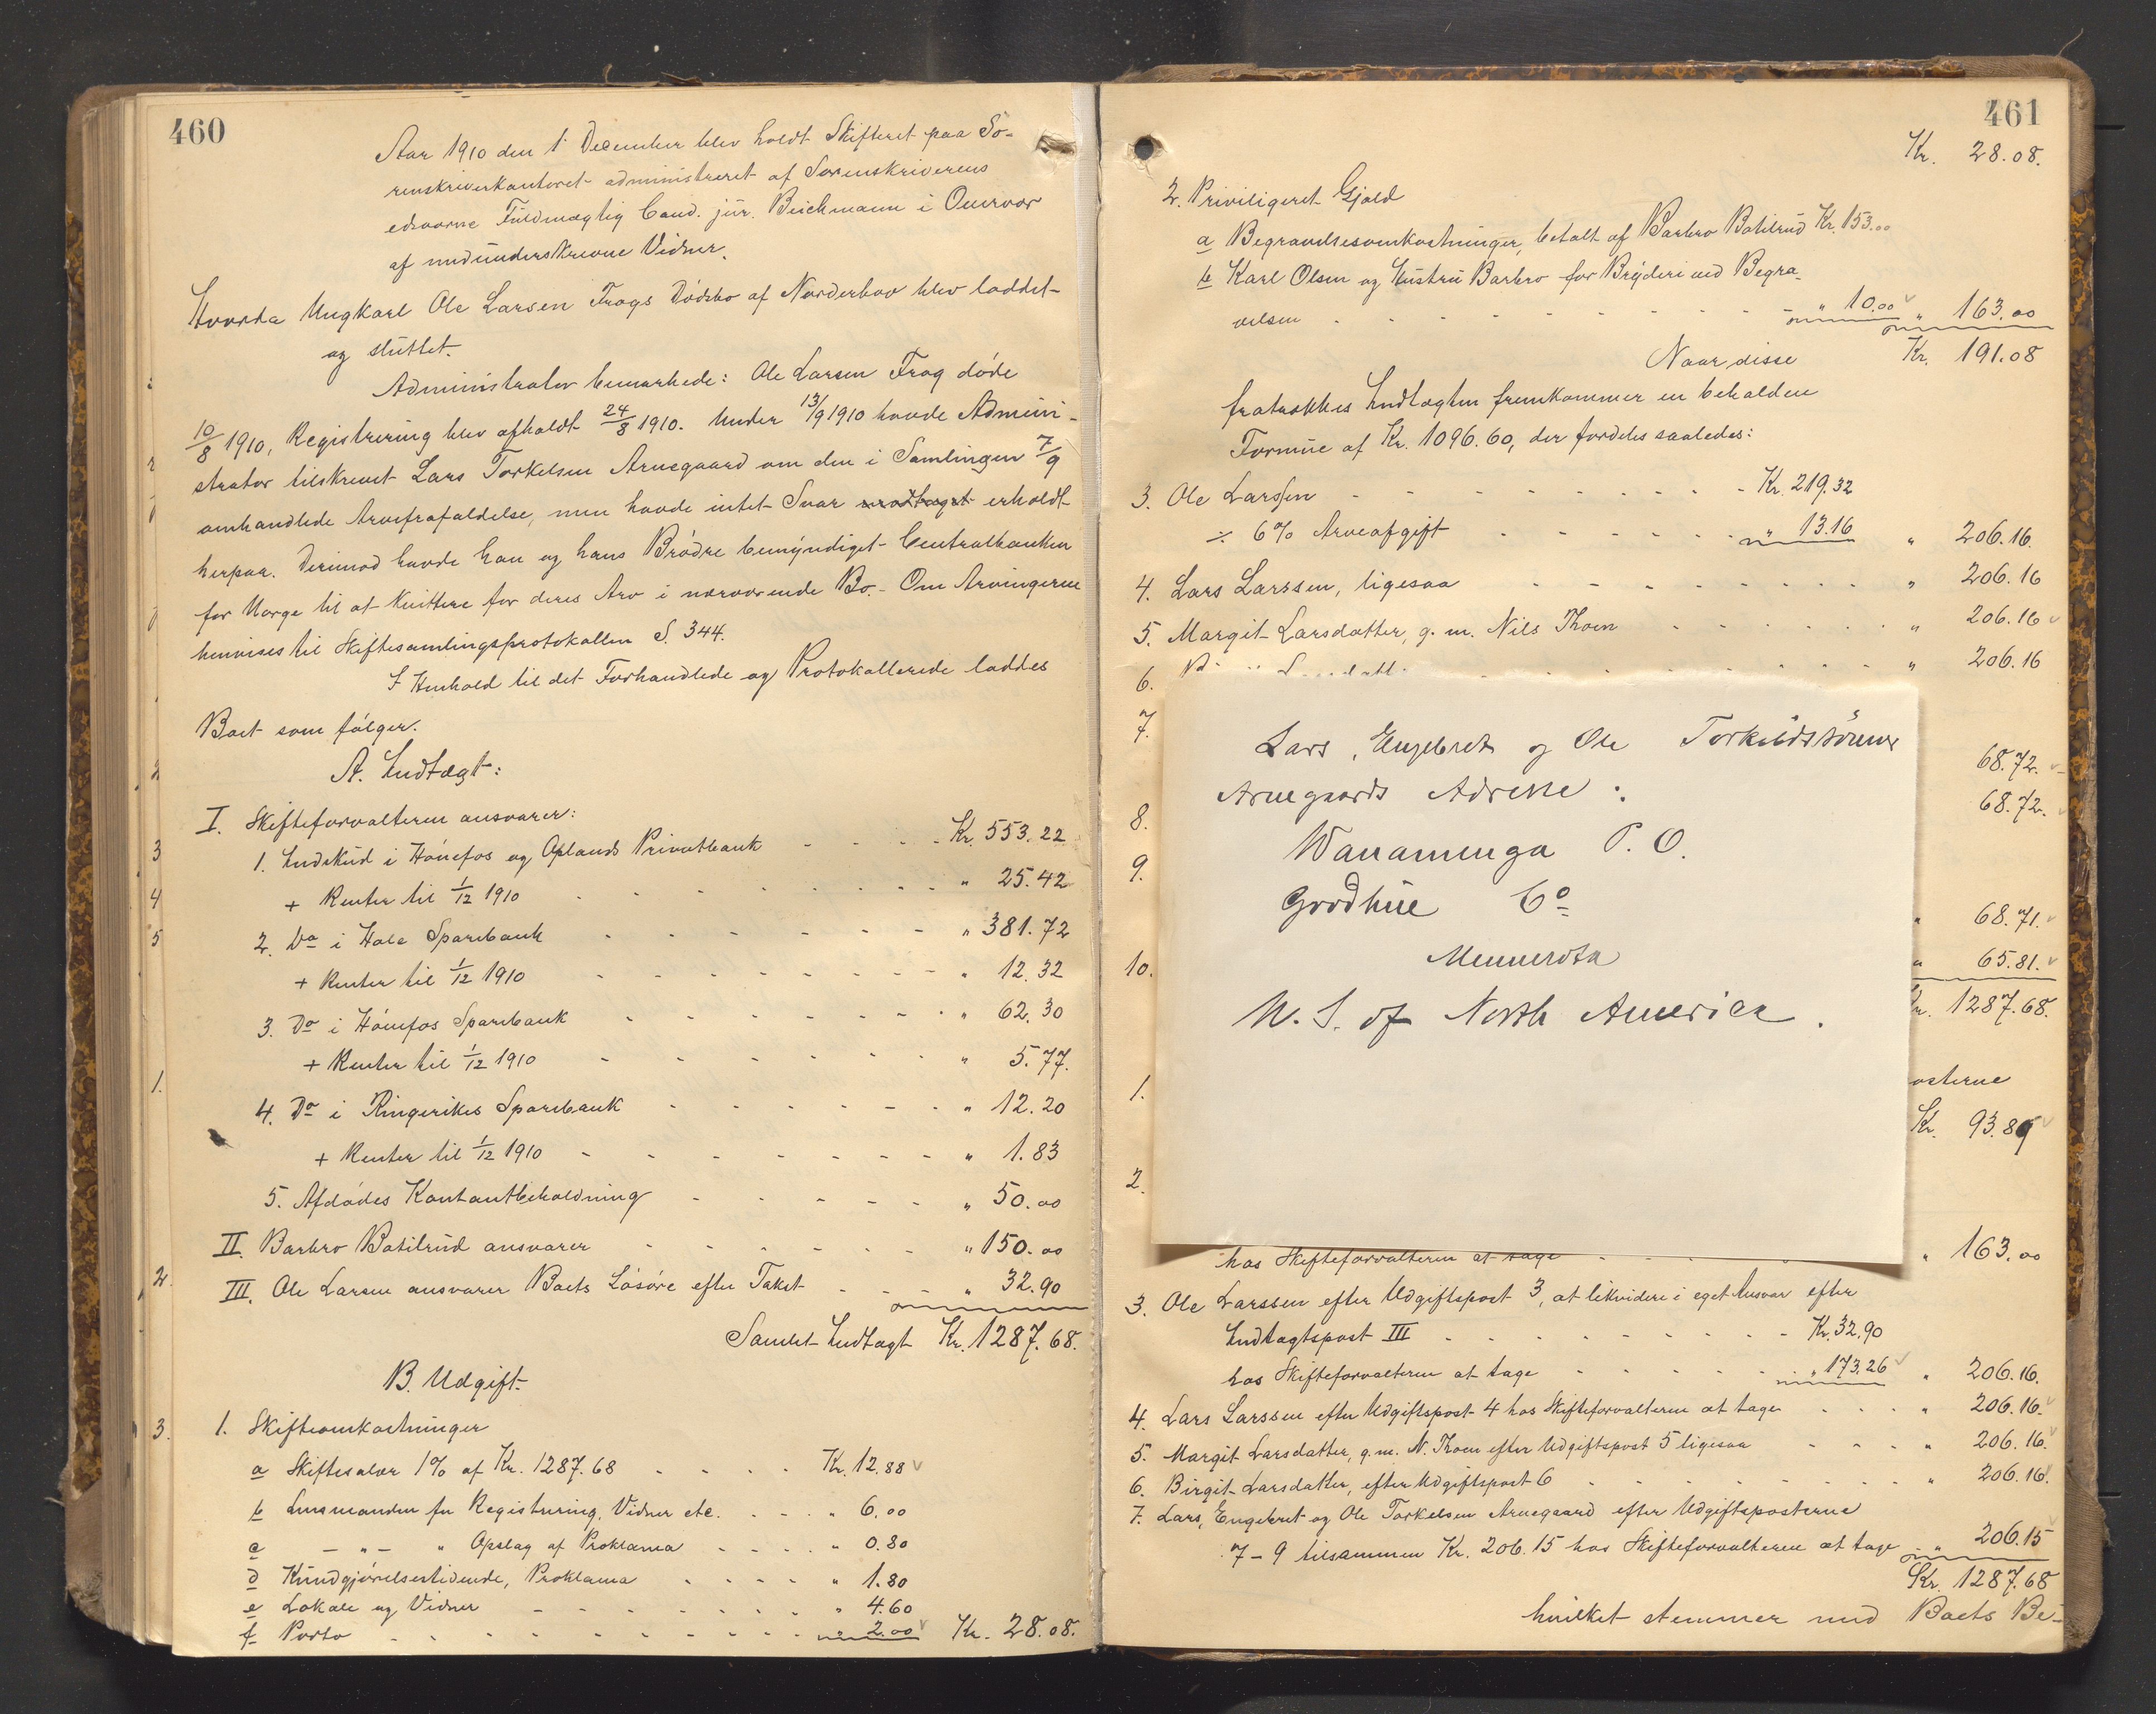 460
Aar 1910 den 1 December blev holdt Skifteret paa So-
renskriverkontoret administreret af Sorenskriverens
edsvorne Fuldmægtig Cand. jur. Beichmann i Overvær
af medunderskrevne Vidner.
Hvorda Ungkarl Ole Larsen Frøgs Dødsbo af Norderhov blev loddet
og sluttet.
Administrator bemærkede: Ole Larsen Frøg døde
10/8 1910, Registrering blev afholdt 24/8 1910. Under 13/9 1910 havde Admini-
strator tilskrevet Lars Torkelsen Arnegaard om den i Samlingen 7/9
omhandlede Arvefrafaldelse, men havde intet Svar modtaget erholdt
herpaa. Derimod havde han og hans Brødre bemyndiget Centralbanken
for Norge til at kvittere for deres Arv i nærværende Bo. Om Arvingerne
henvises til Skiftesamlingsprotokollen S. 344.
I Henhold til det Forhandlede og Protokollerede loddes
Boet som følger.
A. Indtægt:
I. Skifteforvalteren ansvarer:
1. Indskud i Hønefos og Oplands Privatbank - - - - Kr. 553.22
+ Renter til 1/12 1910 - - - - - - - " 25.42
2. Do i Hole Sparebank - - - - - - " 381.72
+ Renter til 1/12 1910 - - - - - - - " 12.32
3. Do i Hønefos Sparebank - - - - - - " 62.30
+ Renter til 1/12 1910 - - - - - - " 5.77.
4. Do i Ringerikes Sparebank - - - - - - " 12.20
+ Renter til 1/12 1910 - - - - - - - - " 1.83
5. Afdødes Kontantbeholdning - - - - - " 50.00
II. Barbro Botilrud ansvarer - - - - - - " 150.00
III. Ole Larsen ansvarer Boets Løsøre efter Takst - - - " 32.90
Samlet Indtægt Kr. 1287.68.
B. Udgift
1. Skifteomkostninger
a Skiftesalær 1% af Kr. 1287.68 - - - - Kr. 12.88
b Lensmanden for Registrering, Vidner etc. - - - " 6.00
c - " - " Opslag af Proklama - - - - " 0.80
d Kundgjørelsestidende, Proklama - - - - " 1.80
e Lokale og Vidner - - - - - - - " 4.60
f Porto - - - - - - - - - " 2.00 Kr. 28.08.
461
Kr. 28.08.
2. Priviligeret Gjæld
a Begravelsesomkostninger, betalt af Barbro Botilrud Kr. 153.00
b Karl Olsen og Hustru Barbro for Bryderi ved Begra-
velsen - - - - - - - - - - " 10.00 " 163.00
Naar disse Kr. 191.08
fratrækkes Indtægten fremkommer en beholden
Formue af Kr. 1096.60, der fordeles saaledes:
3. Ole Larssen - - - - - - - - - Kr. 219.32
÷ 6% Arveafgift - - - - - - " 13.16 " 206.16.
4. Lars Larssen, ligesaa - - - - - - - - " 206.16
5. Margit Larsdatter, g. m. Nils Thoen - - - - - - " 206.16
6. - - - - - " 206.16
7.
68.72.
8. 68.72.
9.
" 68.71.
10. " 65.81.
Kr. 1287.68.
1. osterne
Kr. 93.89
2.
Lars, Engebret og Ole Torkildssønner
Arnegaards Adresse:
Wanamenga P. O.
Goodhue Co
Minnesota
U. S. of North America.
hos Skifteforvalteren at tage - - - - " 163.00
3. Ole Larssen efter Udgiftspost 3, at likvidere i eget Ansvar efter
Indtægtspost III - - - - - - - - - Kr. 32.90
hos Skifteforvalteren at tage - - - - - - " 173.26 " 206.16.
4. Lars Larssen efter Udgiftspost 4 hos Skifteforvalteren at tage - - - - " 206.16.
5. Margit Larsdatter, g. m. N. Thoen efter Udgiftspost 5 ligesaa - - - - " 206.16.
6. Birgit Larsdatter, efter Udgiftspost 6 - - - - - - - - - " 206.16.
7. Lars, Engebret og Ole Torkelsen Arnegaard efter Udgiftsposterne
7-9 tilsammen Kr. 206.15 hos Skifteforvalteren at tage - " 206.15
Kr. 1287.68
hvilket stemmer med Boets Be-